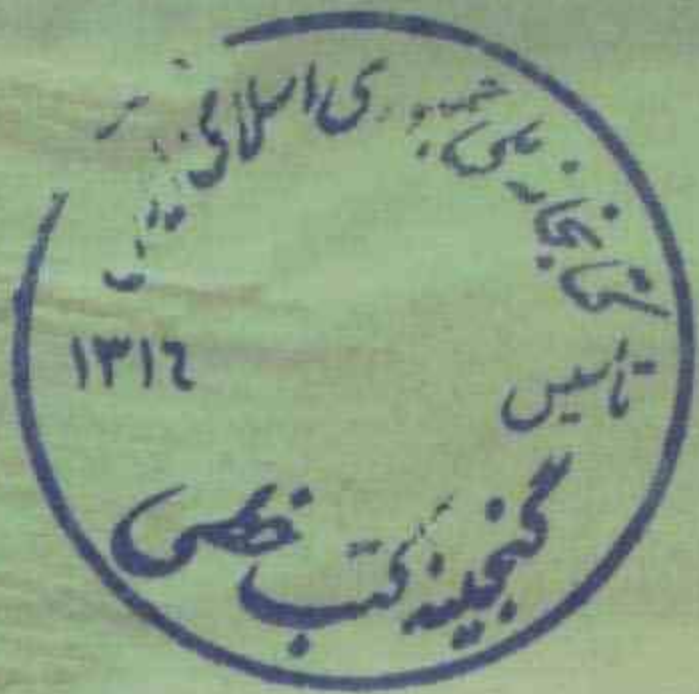 کتابخانه ملی جمهوری اسلامی
تأسیس ۱۳۱۶
گنجینه کتب خطی